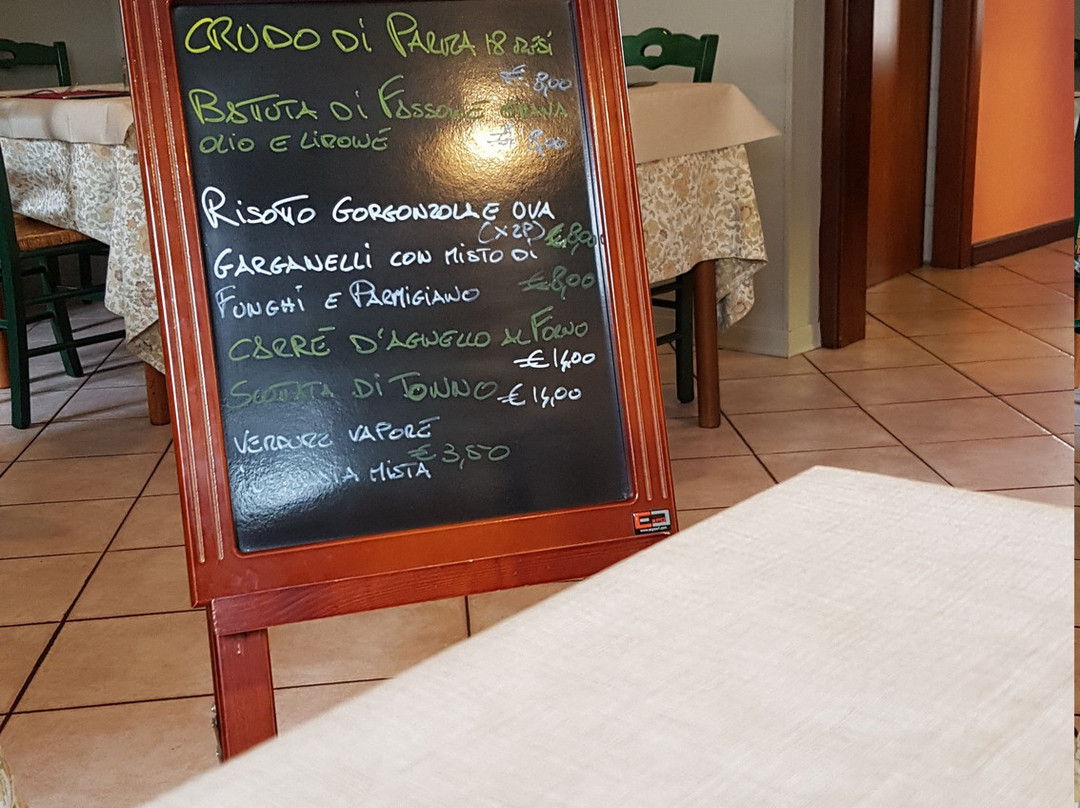 CRUDO DI PARMA 18 MESI
€ 8,00
BATTUTA DI FASSONE
OLIO E LIMONE € 8,00
RISOTTO GORGONZOLA E UVA
(X2P) € 8,00
GARGANELLI CON MISTO DI
FUNGHI E PARMIGIANO € 8,00
CARRÉ D'AGNELLO AL FORNO
€ 14,00
SCOTTATA DI TONNO € 14,00
VERDURE VAPORE
€ 3,50
MISTA